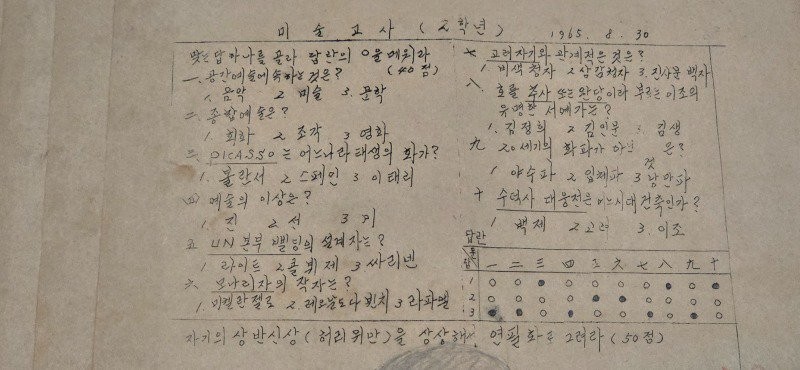 미술고사 (2학년) 1965. 8. 30
맞는 답 하나를 골라 답란의 O을 메워라
(40점)
一. 공간예술에 속하는 것은?
1. 음악 2 미술 3. 문학
二. 종합예술은?
1. 회화 2 조각 3 영화
三 PICASSO는 어느나라 태생의 화가?
1. 불란서 2 스페인 3 이태리
四 예술의 이상은?
1. 진 2 선 3 미
五 UN 본부 삘딩의 설계자는?
1 라이트 2 콜뷔제 3 싸리넨
六 모나리자의 작자는?
1. 미켈란젤로 2 레오날도다 빈치 3 라파엘
七 고려자기와 관계적은 것은?
1 비색청자 2 상감청자 3. 진사문 백자
八 호를 추사 또는 완당이라 부르는 이조의
유명한 서예가는?
1. 김정희 2 김인문 3. 김생
九 20세기의 화파가 아닌 것은?
1 야수파 2 입체파 3 낭만파
十 수덕사 대웅전은 어느시대 건축인가?
1 백제 2 고려 3. 이조
답란
一 二 三 四 五 六 七 八 九 十
1 ○ ○ ● ○ ○ ○ ○ ● ○ ●
2 ○ ○ ○ ○ ● ● ○ ○ ○ ○
3 ● ● ○ ● ○ ○ ● ○ ● ○
자기의 상반신상(허리위만)을 상상해서 연필화로 그려라 (50점)